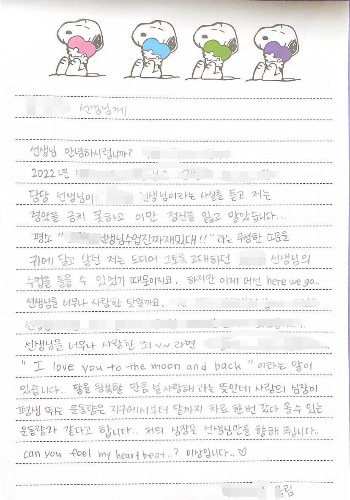 선생님께
선생님 안녕하시렵니까?
2022년
담당 선생님이 선생님이라는 사실을 듣고 저는
경악을 금치 못하고 이만 정신을 잃고 말았습니다...
평소 " 선생님수업진짜재밌대!!" 라는 무성한 소문을
귀에 달고 살던 저는 드디어 그토록 고대하던 선생님의
수업을 들을 수 있었기 때문이지요. 하지만 이제 머선 here we go..
선생님을 너무나 사랑한 탓일까요..
선생님을 너무나 사랑한 죄~~ 라면
" I love you to the moon and back " 이라는 말이
있습니다. 달을 왕복할 만큼 널 사랑해 라는 뜻인데 사람의 심장이
평생 뛰는 운동량은 지구에서부터 달까지 차로 한 번 갔다 올 수 있는
운동량과 같다고 합니다.. 저의 심장은 선생님만을 향해 뜁니다.
can you feel my heartbeat..? 이상입니다..♡
올림